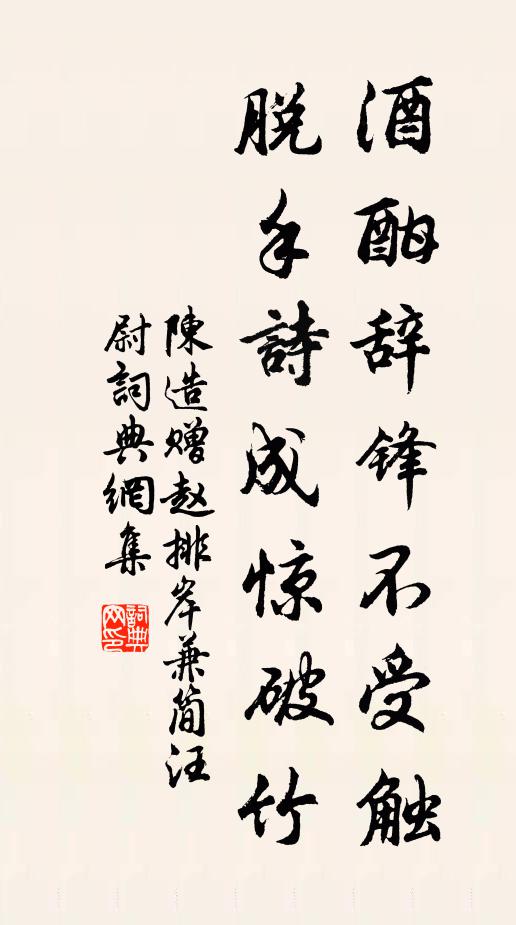 酒酣辞锋不受触
脱手詩成惊破竹
陳造赠赵排岸兼简汪
尉詞典網集
詞典网印